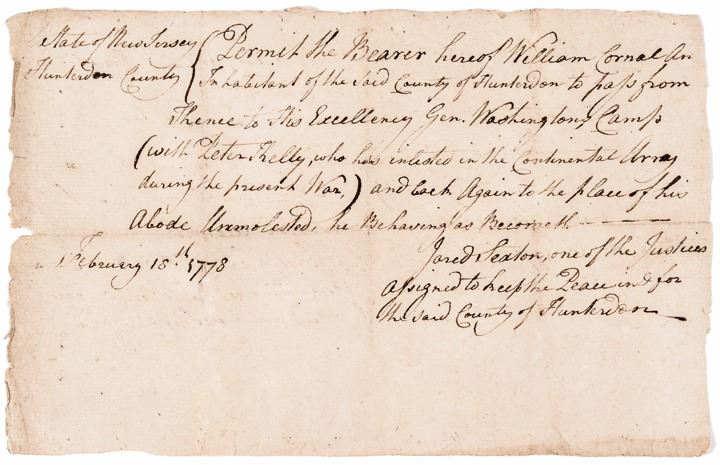 State of New Jersey
Hunterdon County
Permit the Bearer hereof William Cornal An
Inhabitant of the said County of Hunterdon to pass from
Thence to His Excellency Gen. Washingtons Camp
(with Peter Shelly, who has inlested in the Continental Army
during the present War,) and back Again to the place of his
Abode Unmolested, he Behaving as Becometh
February 18th 1778
Jared Sexton, one of the Justices
assigned to keep the Peace in & for
the said County of Hunterdon